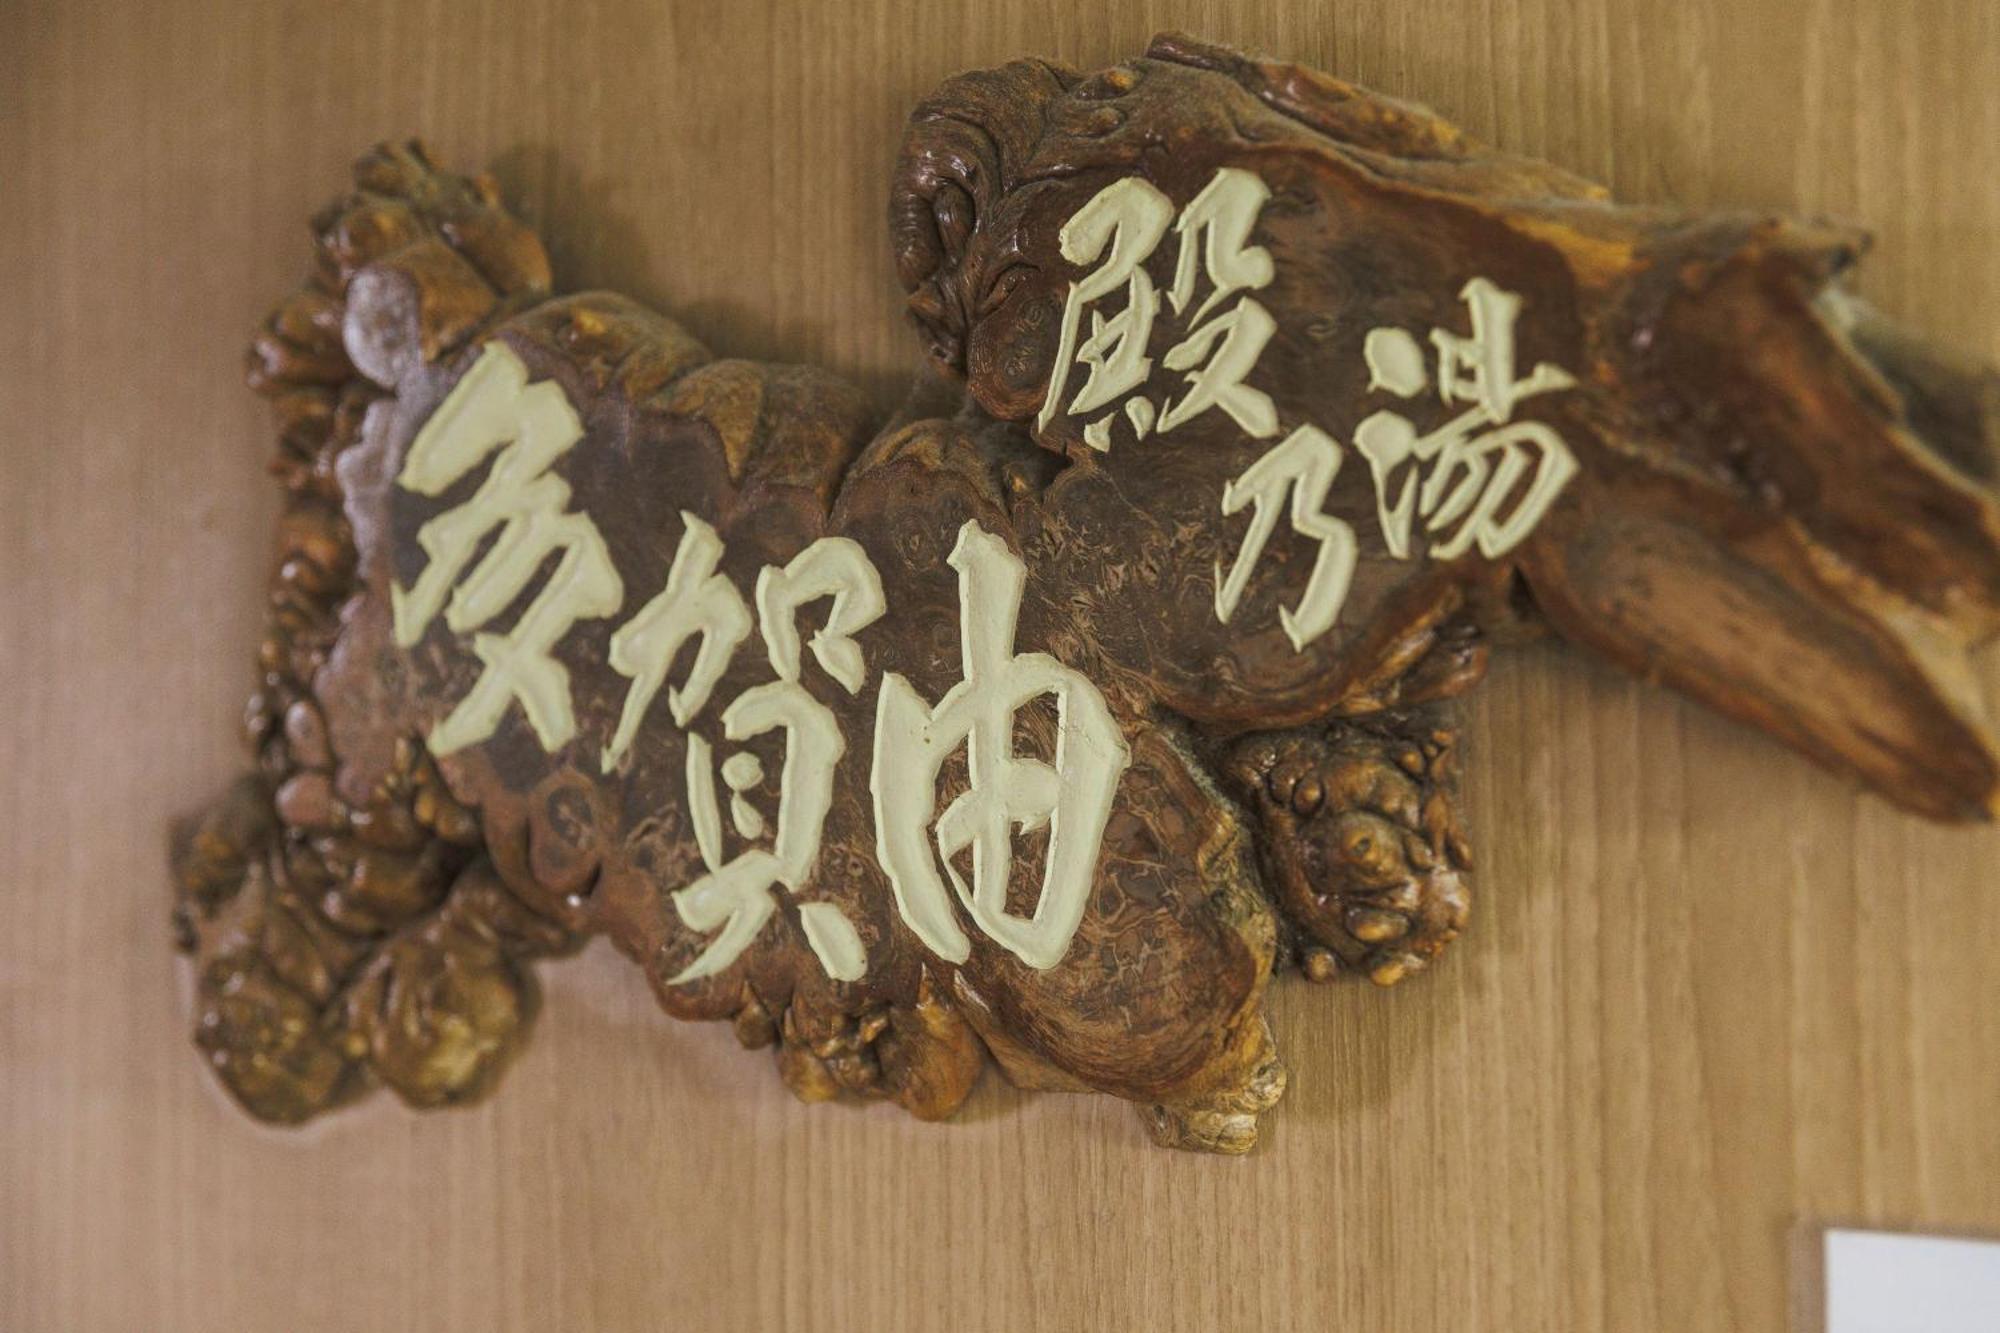 殿乃湯
多賀由